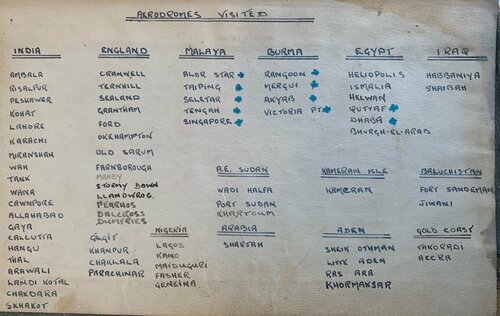 AERODROMES VISITED
INDIA
AMBALA
RISALPUR
PESHAWAR
KOHAT
LAHORE
KARACHI
MIRANSHAH
WAH
TANK
WANA
CAWNPORE
ALLAHABAD
GAYA
CALCUTTA
HANGU
THAL
ARAWALI
LANDI KOTAL
CHAKDARA
SKHAKOT
GILGIT
KHANPUR
CHAKLALA
PARACHINAR
ENGLAND
CRANWELL
TERNHILL
SEALAND
GRANTHAM
FORD
OKEHAMPTON
OLD SARUM
FARNBOROUGH
MANBY
STORMY DOWN
LLANDWROG
PENRHOS
DALCROSS
DUMFRIES
MALAYA
ALOR STAR
TAIPING
SELETAR
TENGAH
SINGAPORE
BURMA
RANGOON
MERGUI
AKYAB
VICTORIA PT.
EGYPT
HELIOPOLIS
ISMALIA
HELWAN
QUTTAF
DHABA
BHURGH-EL-ARAB
IRAQ
HABBANIYA
SHAIBAH
A.E. SUDAN
WADI HALFA
PORT SUDAN
KHARTOUM
KAMERAN ISLE
KAMERAN
BALUCHISTAN
FORT SANDEMAN
JIWANI
NIGERIA
LAGOS
KANO
MAIDUGURI
FASHER
GENEINA
ARABIA
SHARJAH
ADEN
SHEIK OTHMAN
LITTE ADEN
RAS ARA
KHORMAKSAR
GOLD COAST
TAKORADI
ACCRA